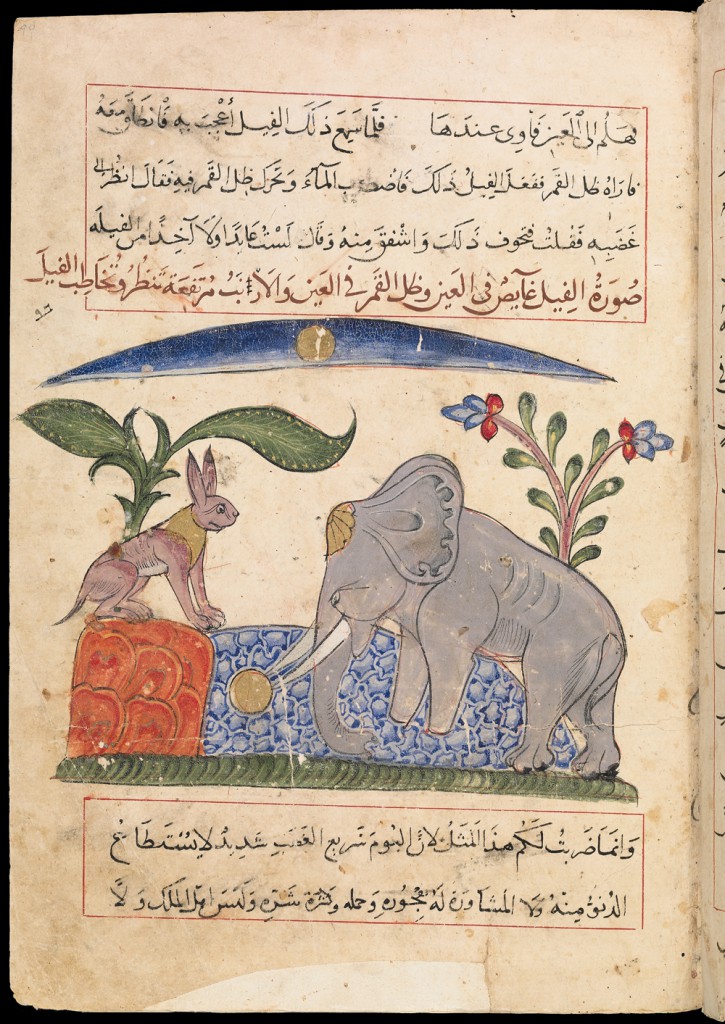 فهلم الى العين فاوى عندها فلما سمع ذلك الفيل أعجب به فانطلق معه
فاراه ظل القمر ففعل الفيل ذلك فاضطرب الماء وتحرك ظل القمر فيه فقال انظر الى
غضبه فقلت فتخوف ذلك واشفق منه وقال لست عابدا ولا آخذا من الفيله
صورة الفيل غايص فى العين وظل القمر فى العين والارنب مرتفعة تنظر وتخاطب الفيل
٩٦
وانما ضربت لكم هذا المثل لان البوم سريع الغضب شديد لا يستطاع
الدنو منه ولا المشاورة له لفجوره وحمله وكثرة شره وليس اهل الملك ولا